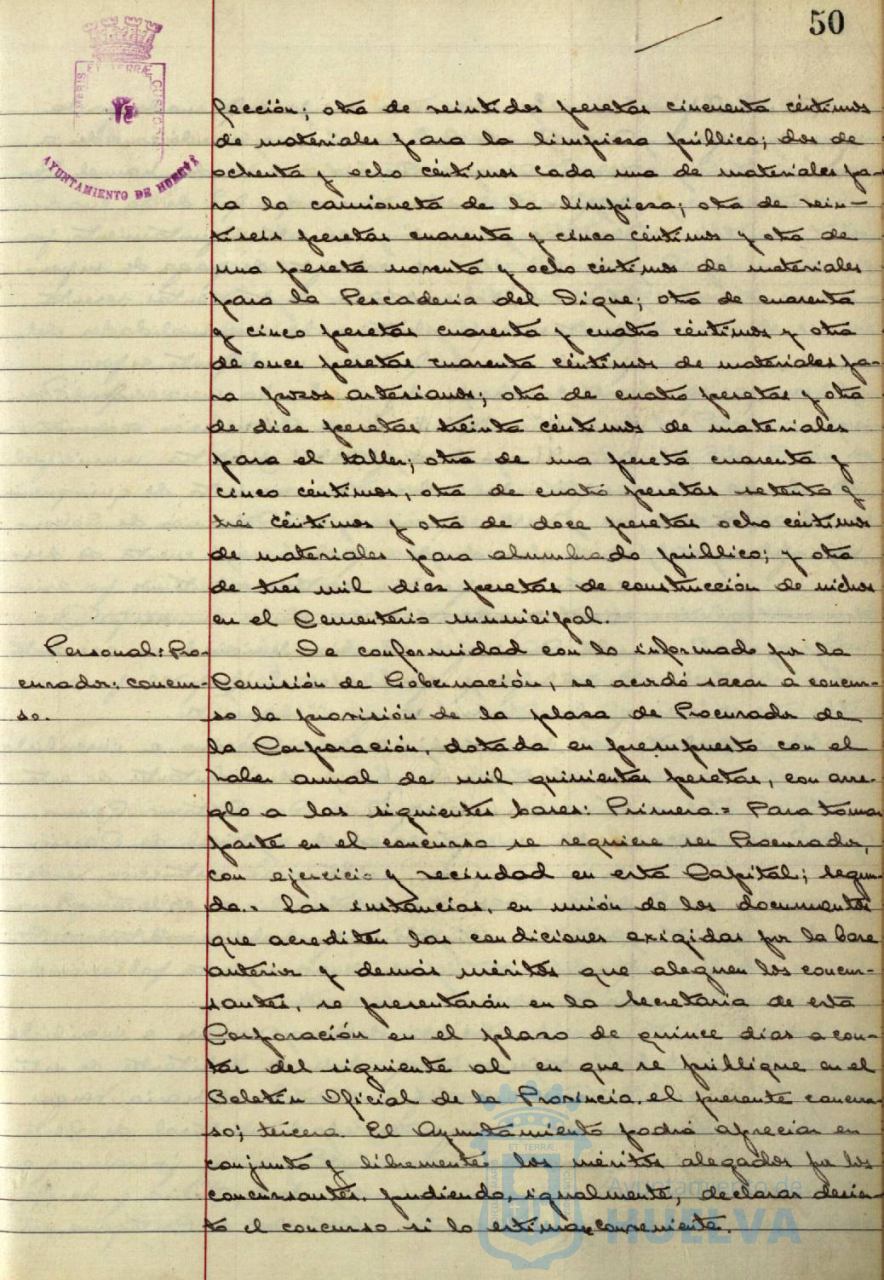 50
AYUNTAMIENTO DE HUELVA
pección; otra de veintidos pesetas cincuenta céntimos
de materiales para la limpieza pública; dos de
ochenta y ocho céntimos cada una de materiales pa-
ra la camioneta de la limpieza; otra de vein-
tiseis pesetas cuarenta y cinco céntimos y otra de
una peseta noventa y ocho céntimos de materiales
para la Pescaderia del Dique; otra de cuarenta
y cinco pesetas cuarenta y cuatro céntimos y otra
de once pesetas cuarenta céntimos de materiales pa-
ra pozos artesianos; otra de cuatro pesetas y otra
de diez pesetas treinta céntimos de materiales
para el taller; otra de una peseta cuarenta y
cinco céntimos, otra de cuatro pesetas setenta y
tres céntimos y otra de doce pesetas ocho céntimos
de materiales para alumbrado público; y otra
de tres mil diez pesetas de construcción de nichos
en el Cementerio municipal.
Personal: Pro-
curador: concur-
so.
De conformidad con lo informado por la
Comisión de Gobernación, se acordó sacar a concur-
so la provisión de la plaza de Procurador de
la Corporación, dotada en presupuesto con el
haber anual de mil quinientas pesetas, con arre-
glo a las siguientes bases: Primera.= Para tomar
parte en el concurso se requiere ser Procurador,
con ejercicio y vecindad en esta Capital; segun-
da.- Las instancias, en unión de los documentos
que acrediten las condiciones exigidas por la base
anterior y demás méritos que aleguen los concur-
santes, se presentarán en la Secretaria de esta
Corporación en el plazo de quince dias a con-
tar del siguiente al en que se publique en el
Boletín Oficial de la Provincia, el presente concur-
so; tercera. El Ayuntamiento podrá apreciar en
conjunto y libremente los méritos alegados por los
concursantes, pudiendo, igualmente, declarar desier-
to el concurso si lo estimare conveniente.
Ayuntamiento de
HUELVA